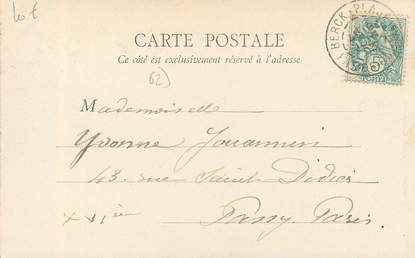 lot
BERCK-PLAGE
CARTE POSTALE
Ce côté est exclusivement réservé à l'adresse
(62)
Mademoiselle
Yvonne
43 rue Saint Didier
XVIè Passy Paris